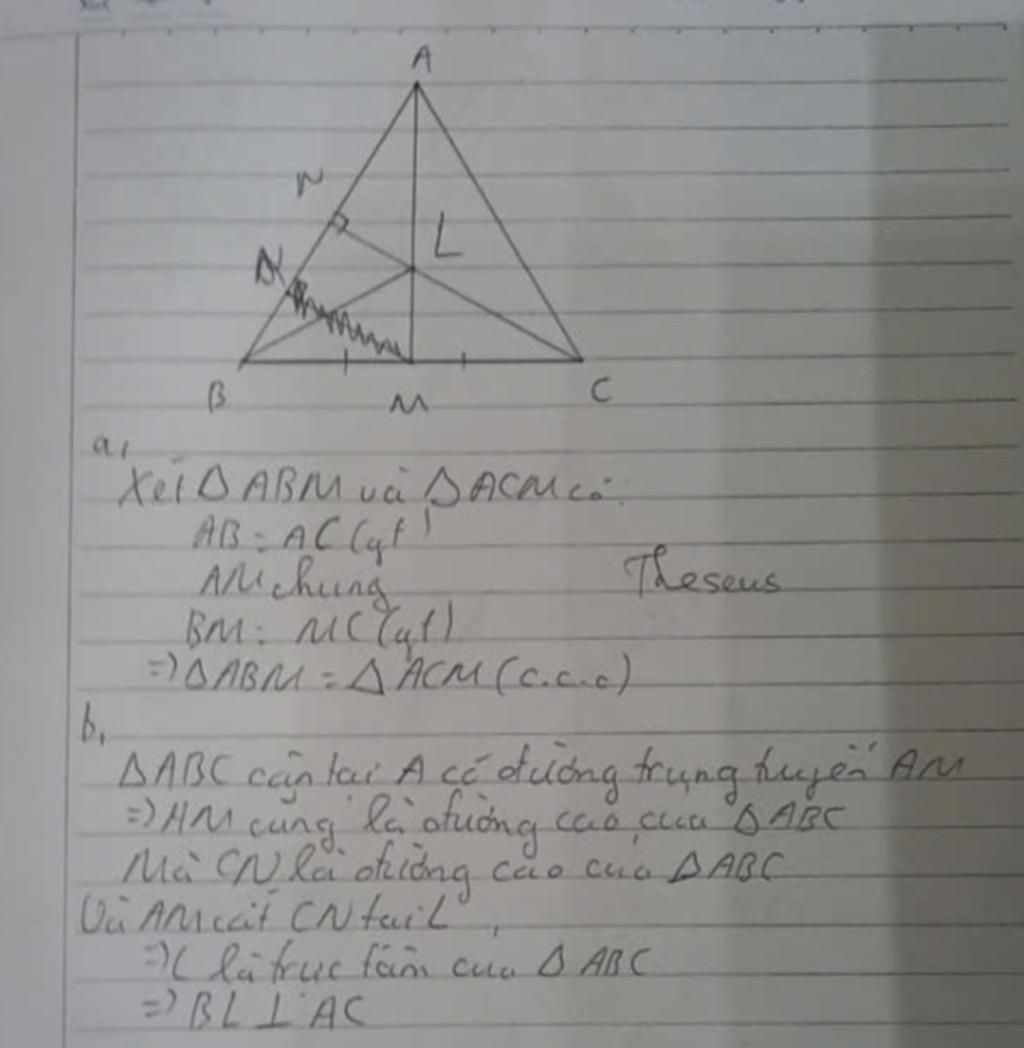 A
N
L
B
M
C
a,
Xét ΔABM và ΔACM có:
AB = AC (gt)
AM chung
Theseus
BM = MC (gt)
=> ΔABM = ΔACM (c.c.c)
b,
ΔABC cân tại A có đường trung tuyến AM
=> AM cũng là đường cao của ΔABC
Mà CN là đường cao của ΔABC
Và AM cắt CN tại L
=> L là trực tâm của ΔABC
=> BL ⊥ AC